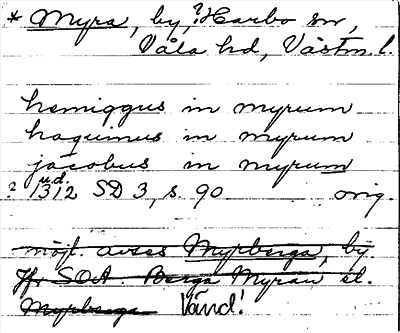 * Myra, by, ? Harbo sn,
Våla hd, Västm. l.
hemiggus in myrum
haquinus in myrum
jacobus in myrum
u.d.
? 1312 SD 3, s. 90 orig.
möjl. avses Myrberga, by
Jfr SOA. Berga Myran el.
Myrberga Vänd!